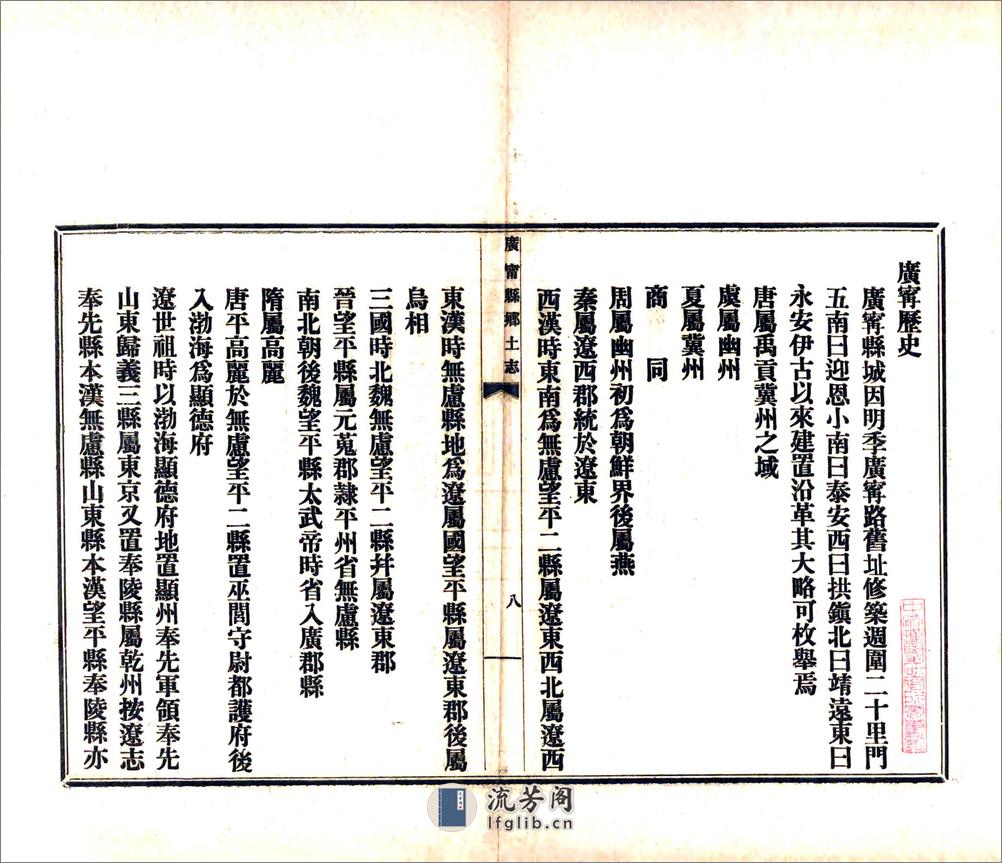 廣寗歷史
廣寗縣城因明季廣寗路舊址修築週圍二十里門
五南曰迎恩小南曰泰安西曰拱鎭北曰靖遠東曰
永安伊古以來建置沿革其大略可枚舉焉
唐屬禹貢冀州之域
虞屬幽州
夏屬冀州
商 同
周屬幽州初爲朝鮮界後屬燕
秦屬遼西郡統於遼東
西漢時東南爲無慮望平二縣屬遼東西北屬遼西
廣甯縣鄉土志
八
東漢時無慮縣地爲遼屬國望平縣屬遼東郡後屬
烏相
三國時北魏無慮望平二縣幷屬遼東郡
晉望平縣屬元菟郡隸平州省無慮縣
南北朝後魏望平縣太武帝時省入廣郡縣
隋屬高麗
唐平高麗於無慮望平二縣置巫閭守尉都護府後
入渤海爲顯德府
遼世祖時以渤海顯德府地置顯州奉先軍領奉先
山東歸義三縣屬東京又置奉陵縣屬乾州按遼志
奉先縣本漢無慮縣山東縣本漢望平縣奉陵縣亦
流芳阁
lfglib.cn